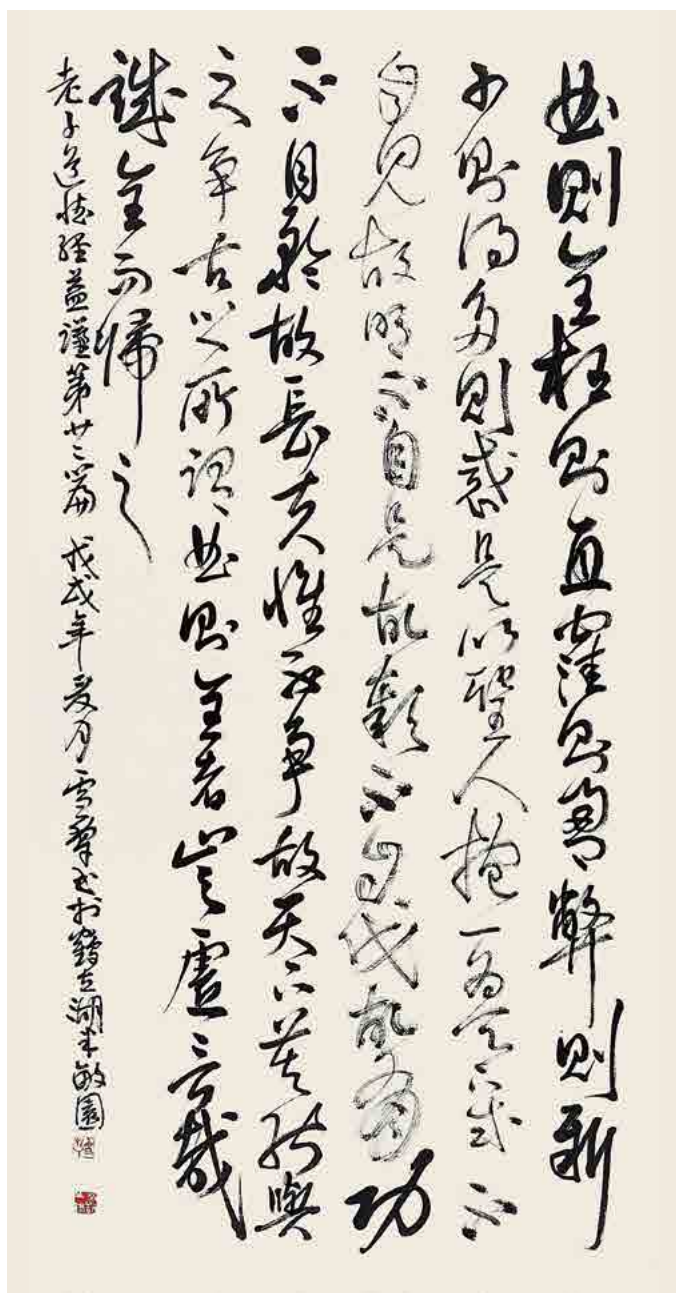 曲則全枉則直窪則盈弊則新
少則得多則惑是以聖人抱一為天下式不
自見故明不自是故彰不自伐故有功
不自矜故長夫惟不爭故天下莫能與
之爭古之所謂曲則全者豈虛言哉
誠全而歸之
老子道德經益謙第廿二篇 戊戌年夏月雪 書於鶴立湖 敏園